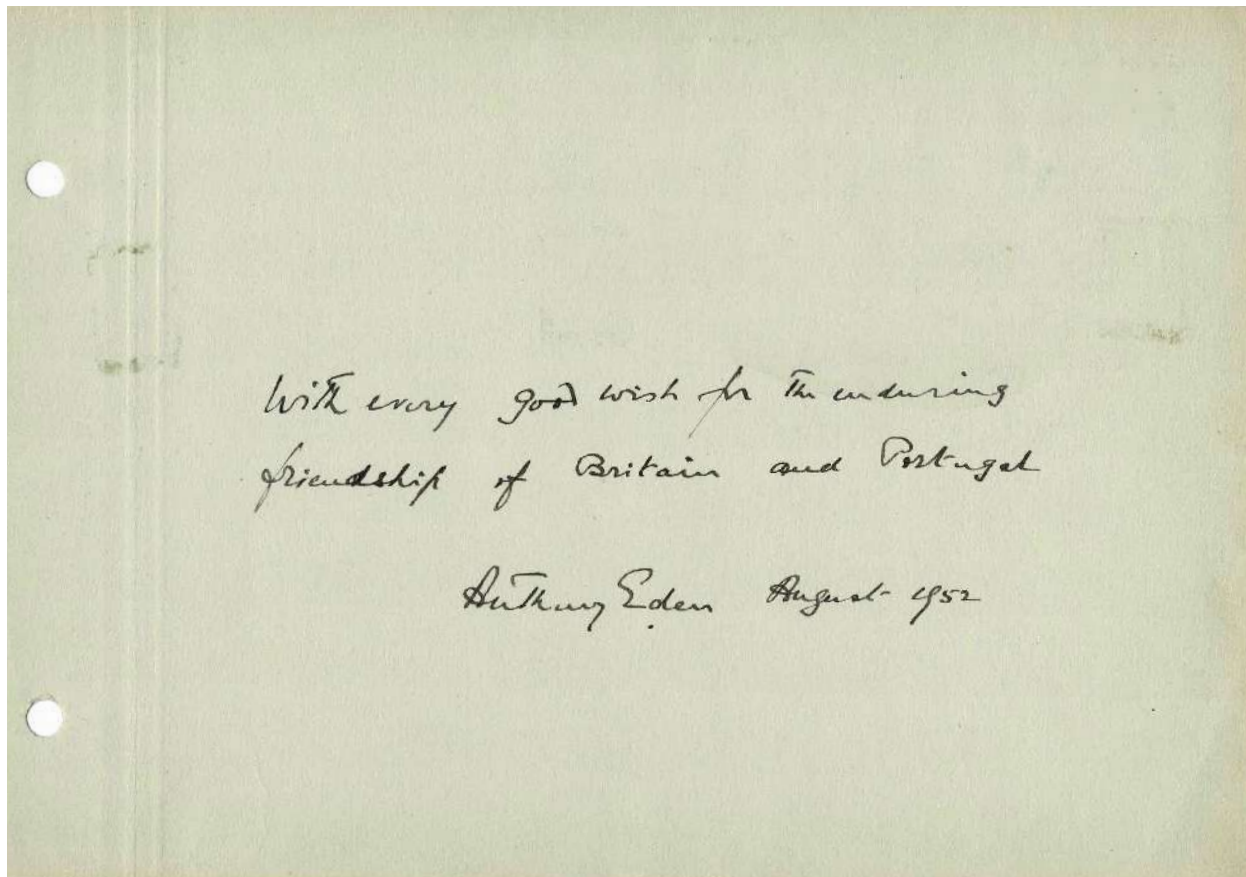 With every good wish for the enduring
friendship of Britain and Portugal
Anthony Eden August 1952